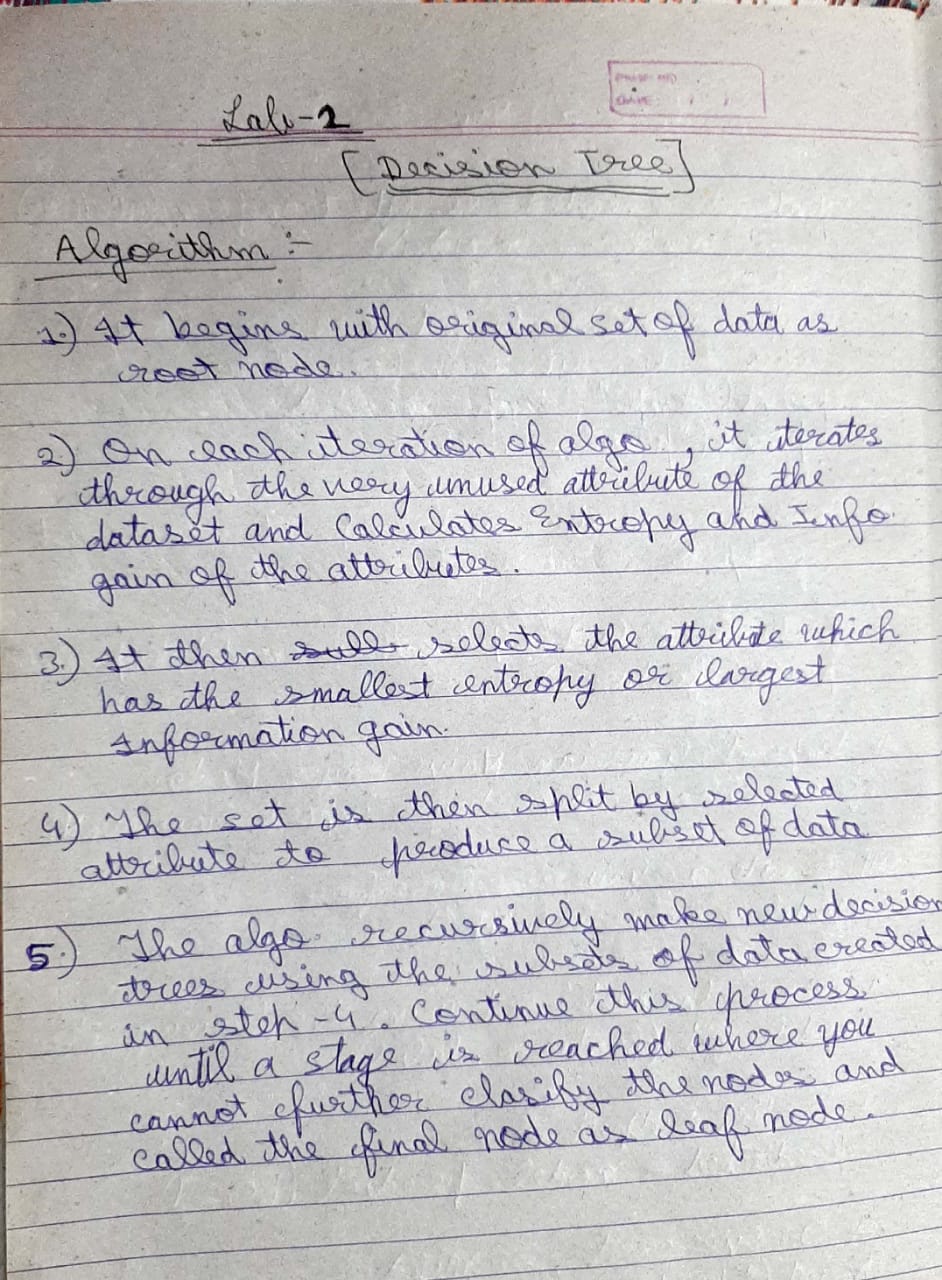 PAGE NO
DATE
Lab-2
[Decision Tree]
Algorithm :-
1.) It begins with original set of data as
root node.
2) On each iteration of algo, it iterates
through the very unused attribute of the
dataset and Calculates Entropy and Info.
gain of the attributes.
3.) It then selects the attribute which
has the smallest entropy or largest
Information gain.
4) The set is then split by selected
attribute to produce a subset of data
5.) The algo. recursively make new decision
trees using the subsets of data created
in step-4. Continue this process
until a stage is reached where you
cannot further clasify the nodes and
called the final node as leaf node.